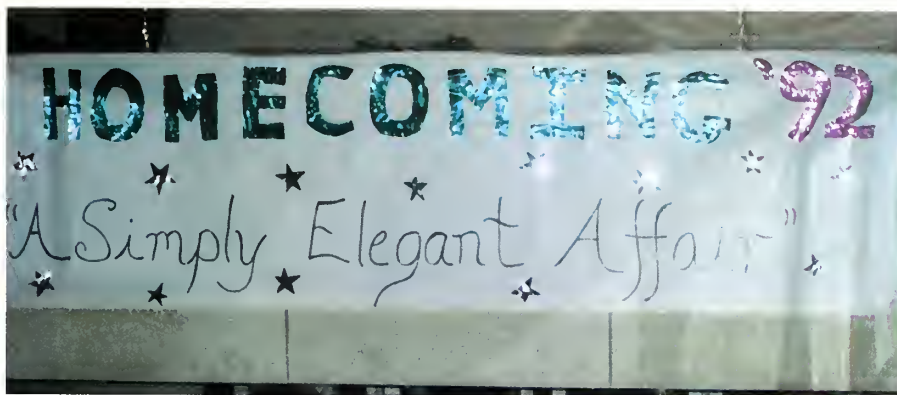 HOMECOMING '92
"A Simply Elegant Affair"